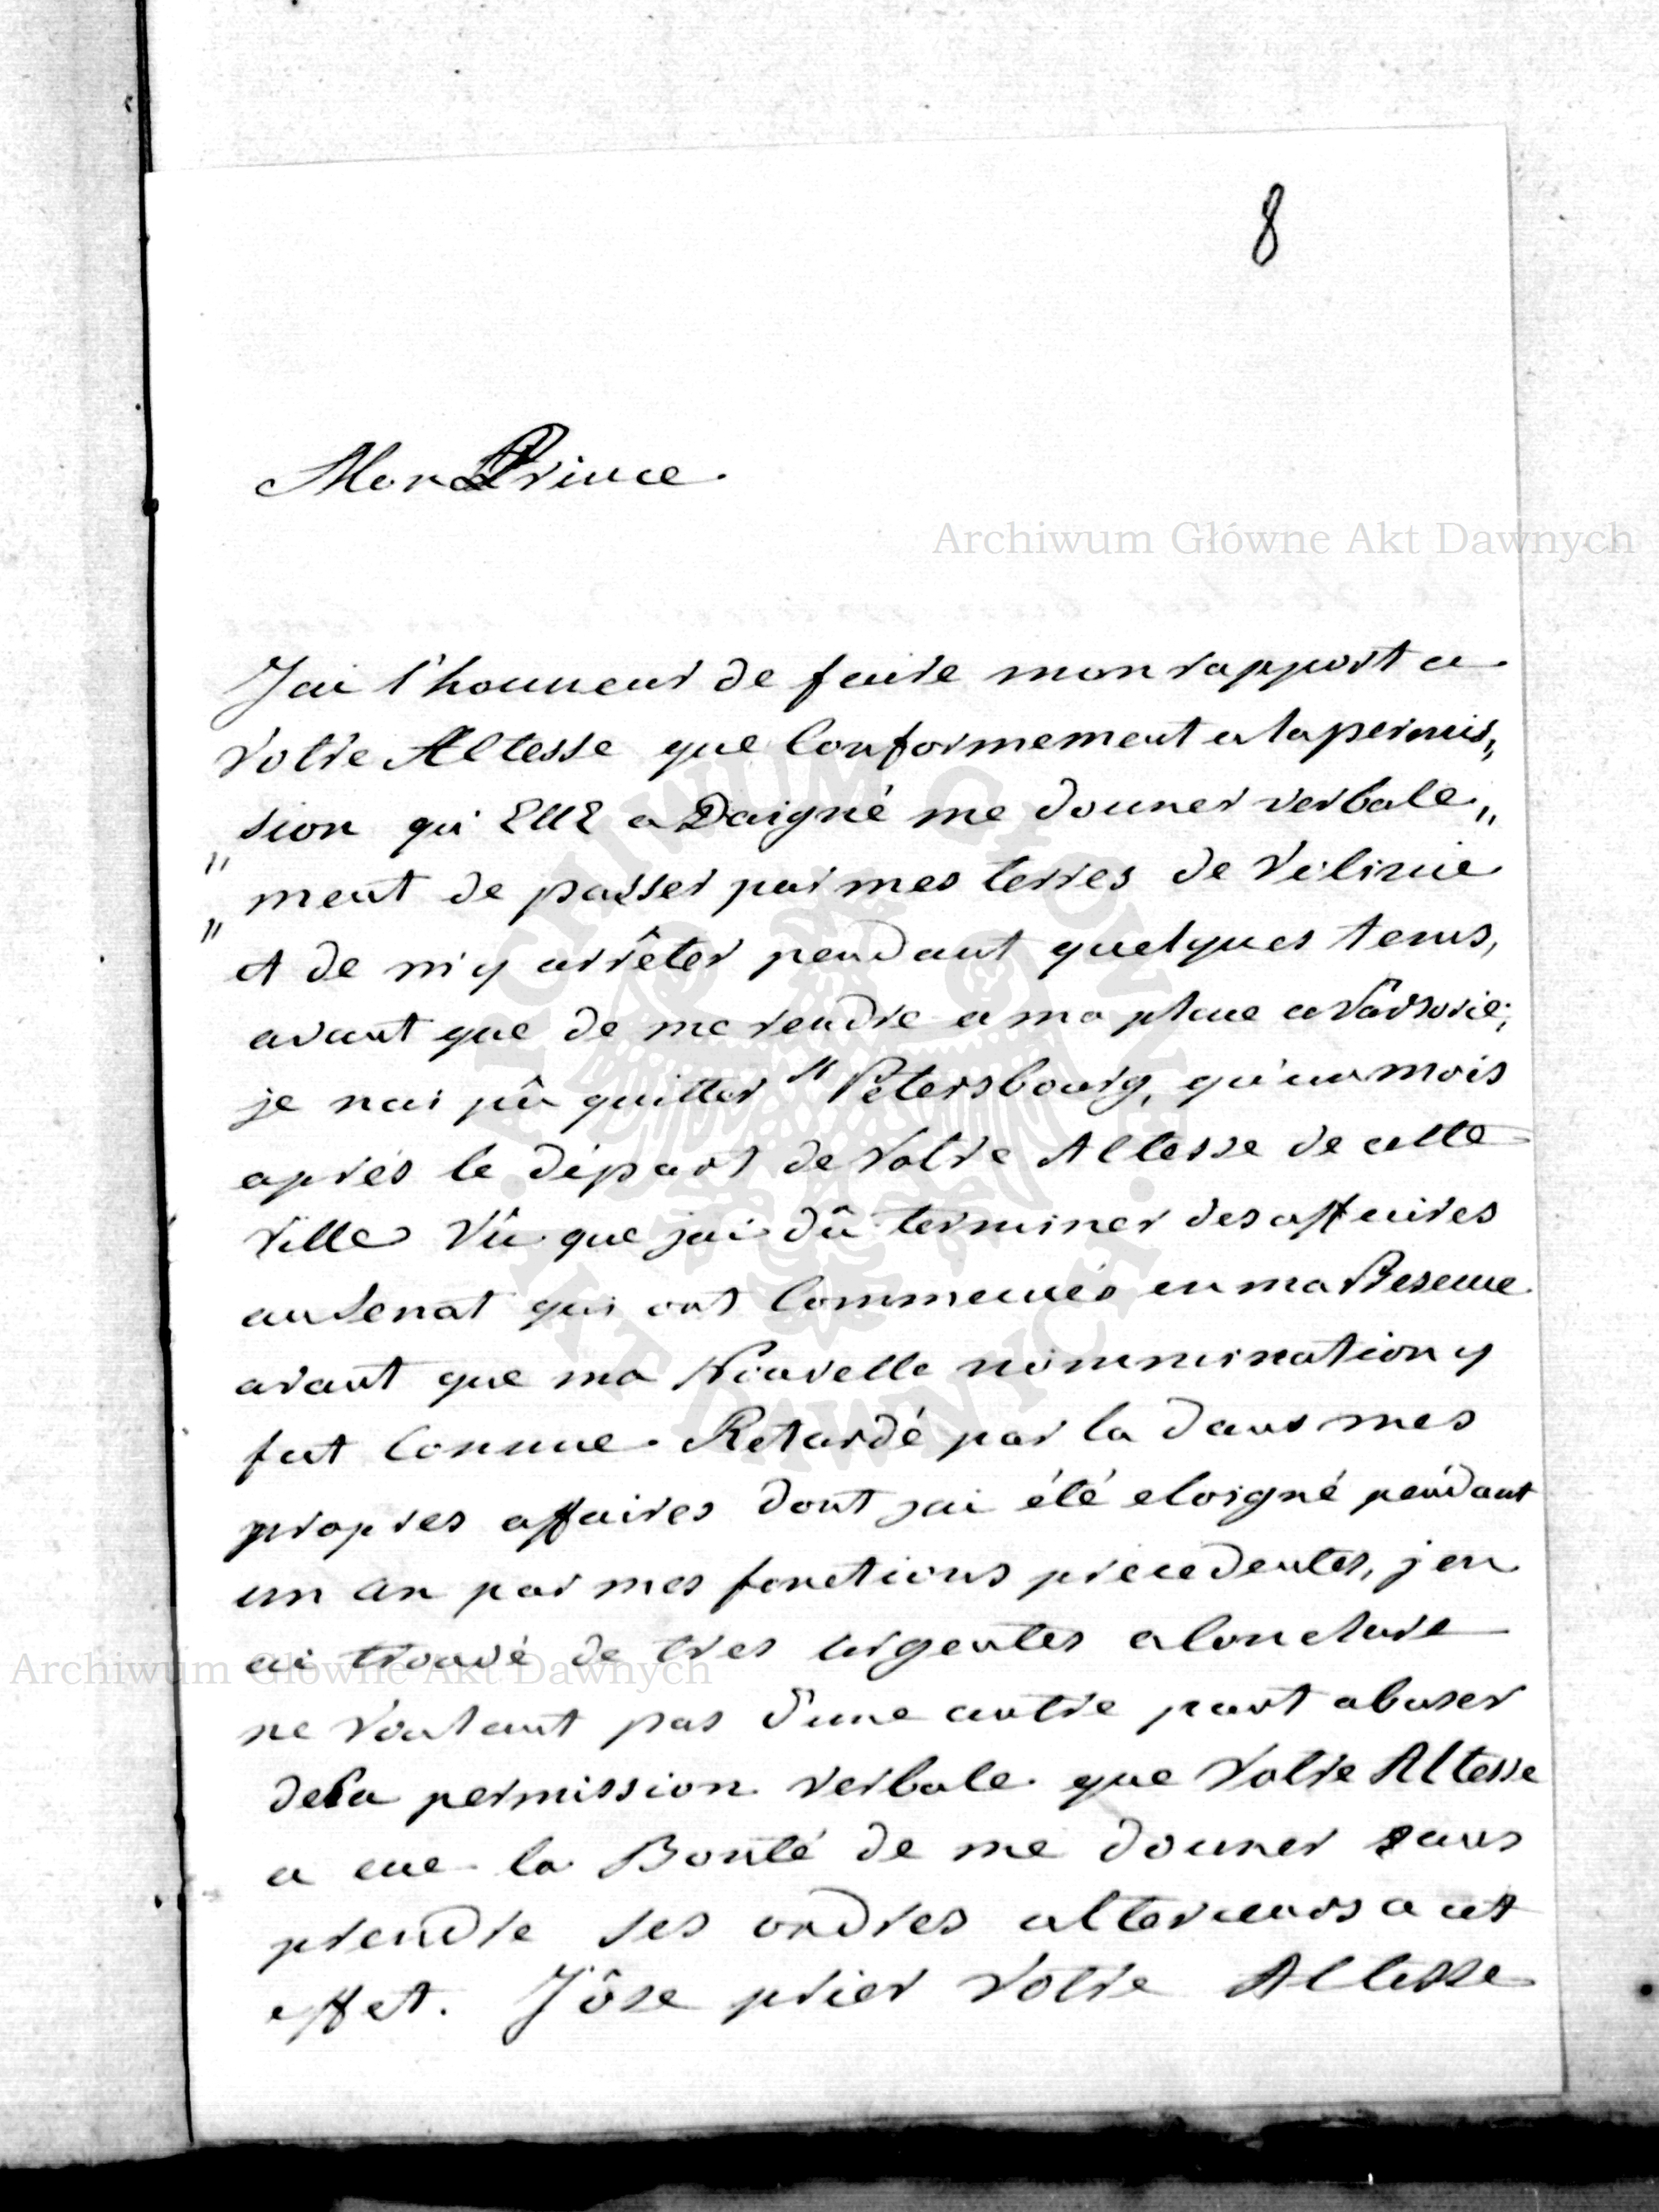 8
Mon Prince.
Archiwum Główne Akt Dawnych
Jai l'honneur de faire mon rapport a
Votre Altesse que Conformement a la permis„
„sion qu'Elle a Daigné me donner verbale„
„ment de passer par mes terres de
et de m'y arrêter pendant quelques tems,
avant que de me rendre a ma place a Varsovie;
je nai pû quitter St Petersbourg, qu'un mois
aprés le départ de Votre Altesse de cette
Ville Vû que jai dû terminer des affaires
au Senat qui ont Commencés en ma Presence
avant que ma Nouvelle nommination y
fut Connue. Retardé par la dans mes
propres affaires dont jai été eloigné pendant
un an par mes fonctions precedentes, j'en
ai trouvé de tres urgentes a Conclure
Archiwum Główne Akt Dawnych
ne Voulant pas d'une autre part abuser
de la permission verbale que Votre Altesse
a eue la Bonté de me donner sans
prendre ses ordres ulterieurs a cet
effet. J'ôse prier Votre Altesse
ARCHIWUM GŁÓWNE · AKT DAWNYCH ·